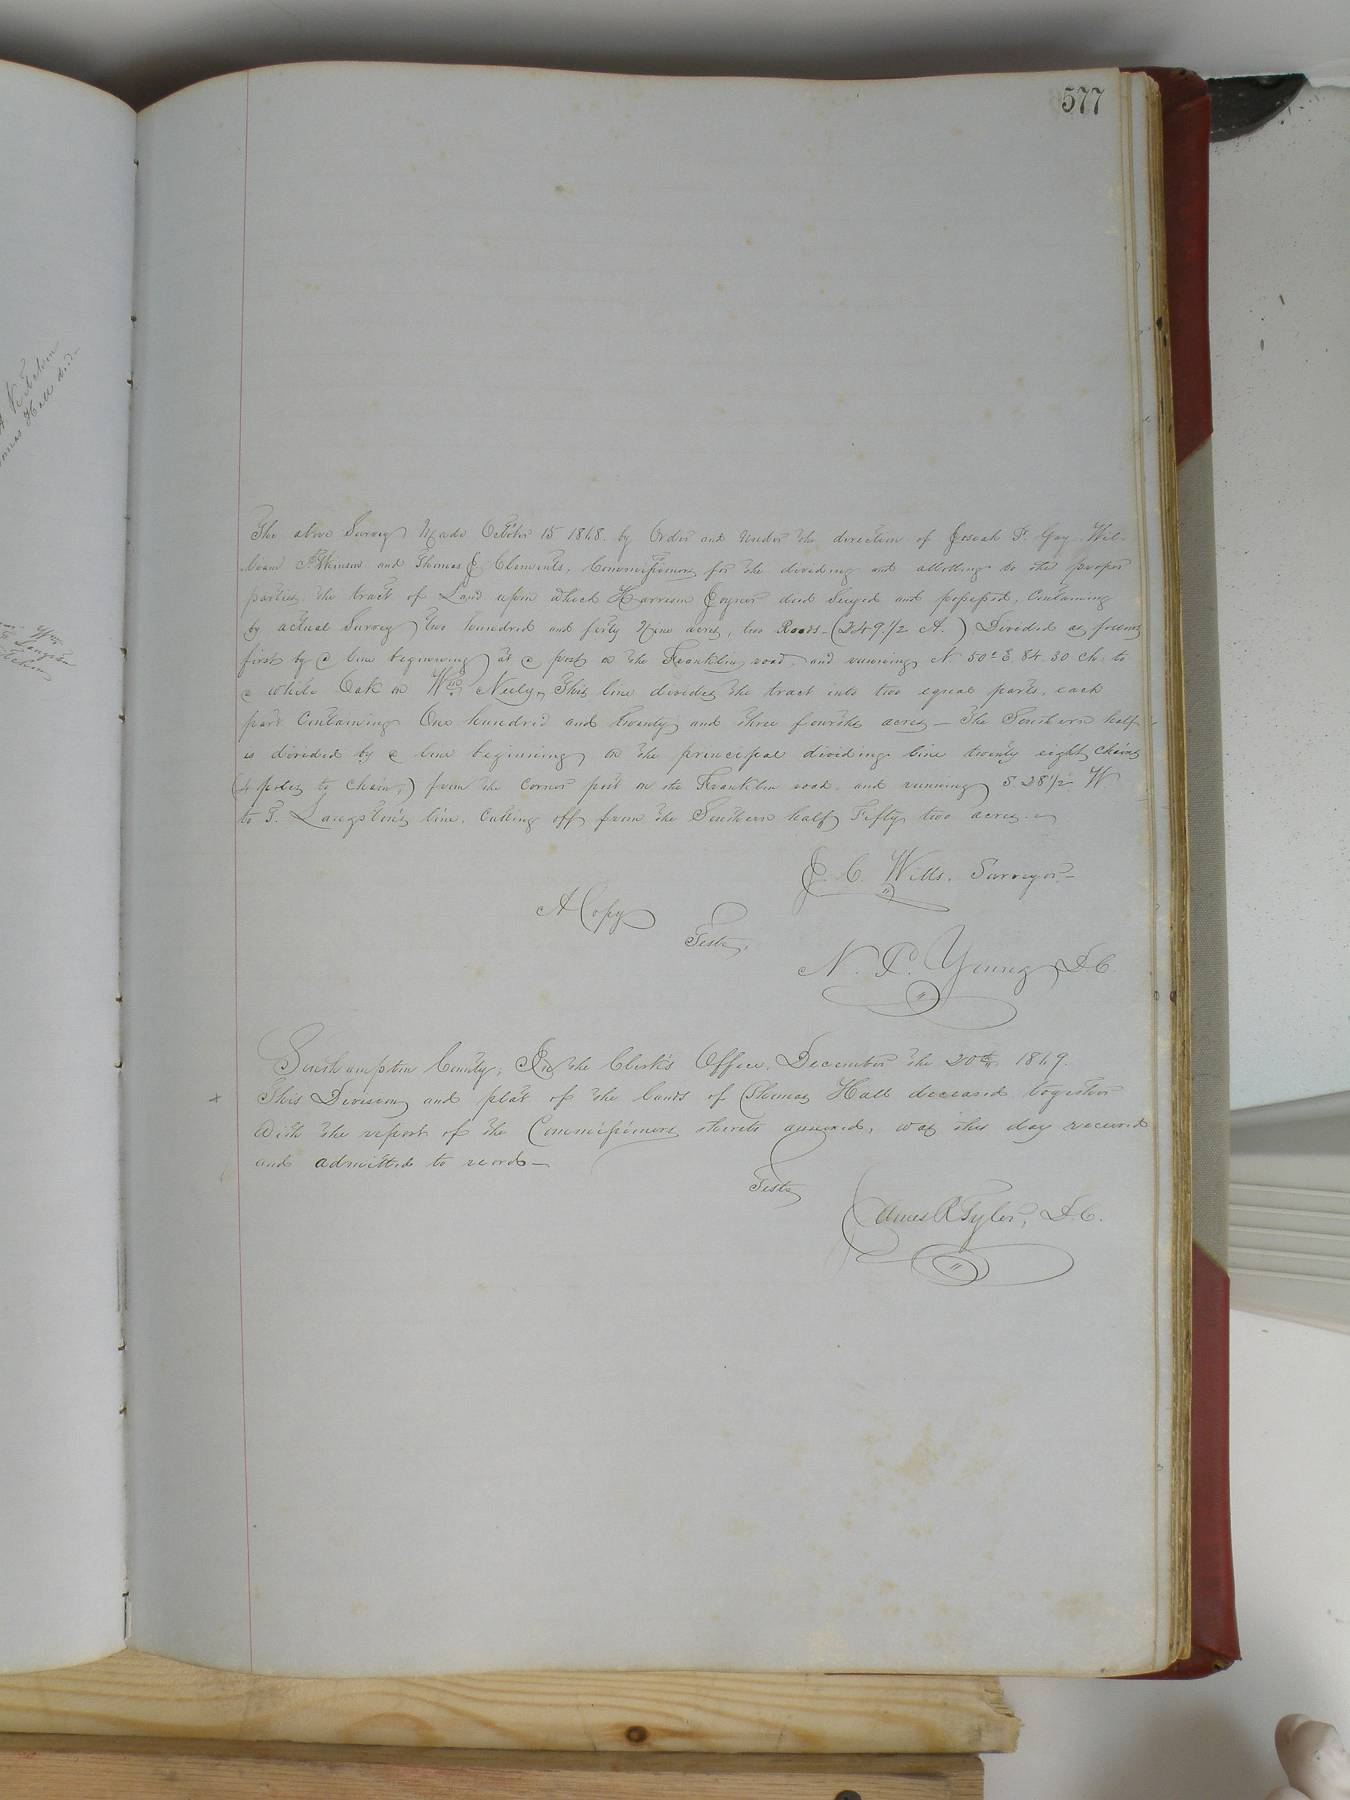 577
The above Survey Made October 15 1848. by Order and Under the direction of Josiah P. Gay. Wil-
liam Atkinson and Thomas J. Clements, Commissioners for the dividing and allotting to the proper
parties, the tract of Land upon which Harrison Joyner died Seized and possessed, Containing
by actual Survey two hundred and forty Nine acres, two Roods - (249.1/2 A.) Divided as follows
first by a line beginning at a post on the Franklin road, and running N 50° E 84.30 ch. to
a white Oak on Wm. Neely, This line divides the tract into two equal parts, each
part Containing One hundred and twenty and three fourths acres - The Southern half
is divided by a line beginning on the principal dividing line twenty eight chains
(4 poles to chain,) from the corner post on the Franklin road, and running S 28 1/2 W
to T. Langston's line, cutting off from the Southern half Fifty two acres. -
J. C. Wills. Surveyor. -
A Copy
Teste,
N. P. Young, D. C.
Southampton County; In the Clerk's Office, December the 20th 1849.
This Division and plat of the lands of Thomas Hall deceased together
With the report of the Commissioners thereto annexed, was this day received
and admitted to record -
Teste
James R. Tyler, D. C.
Hall dec'd